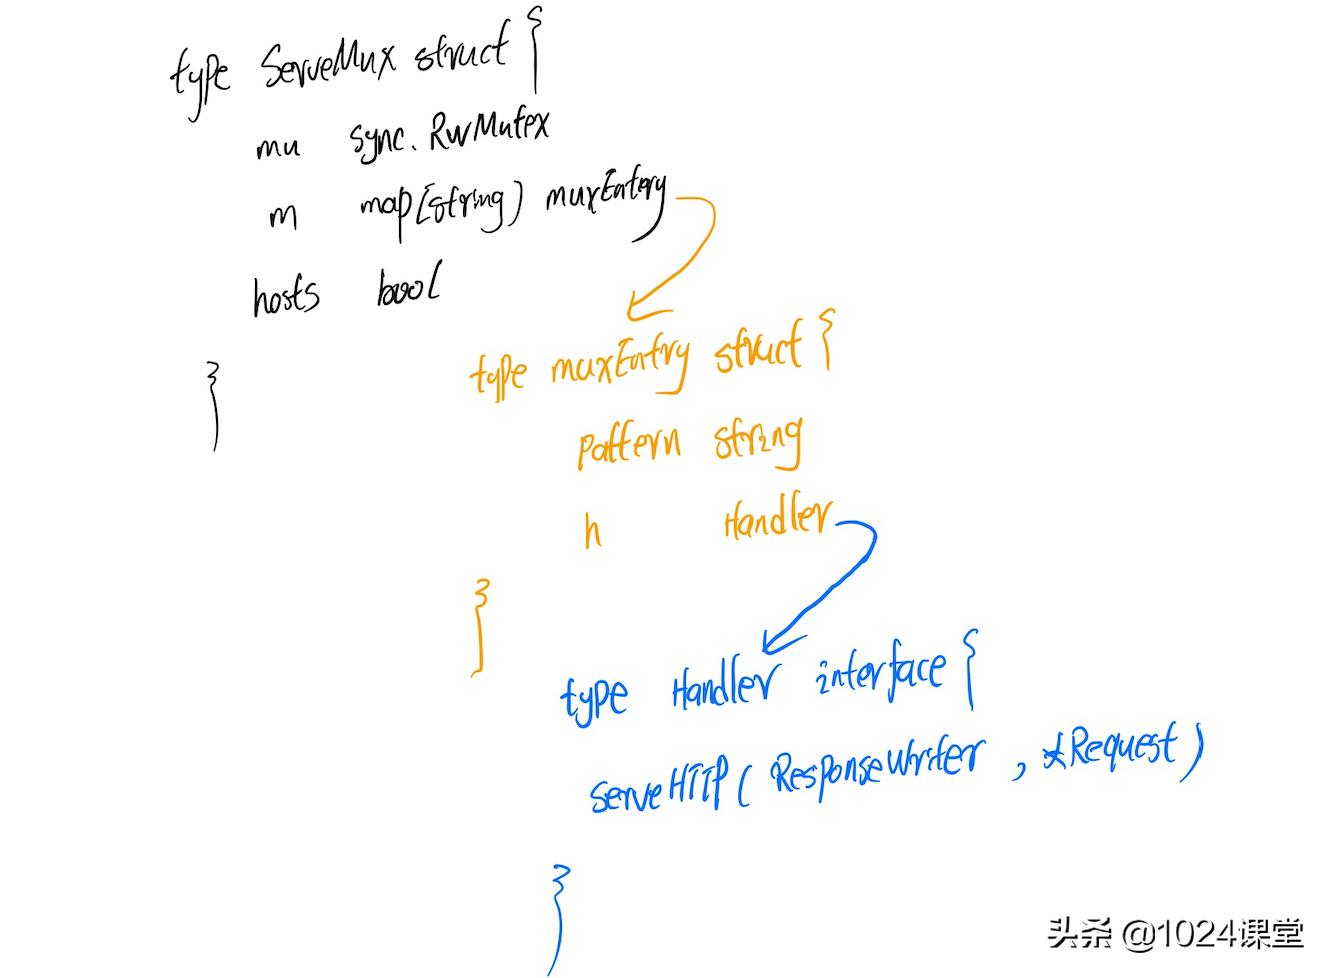 type ServeMux struct {
mu sync.RWMutex
m map[string] muxEntry
hosts bool
}
type muxEntry struct {
pattern string
h Handler
}
type Handler interface {
serveHTTP( ResponseWriter , *Request )
}
头条 @1024课堂